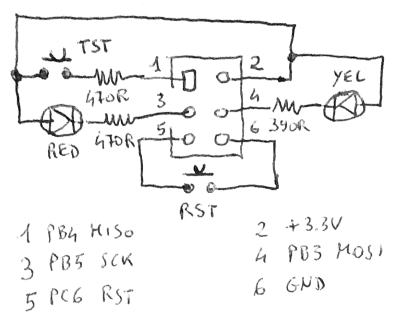 TST
1
2
470R
YEL
3
4
RED
470R
5
6
390R
RST
1 PB4 MISO
2 +3.3V
3 PB5 SCK
4 PB3 MOSI
5 PC6 RST
6 GND